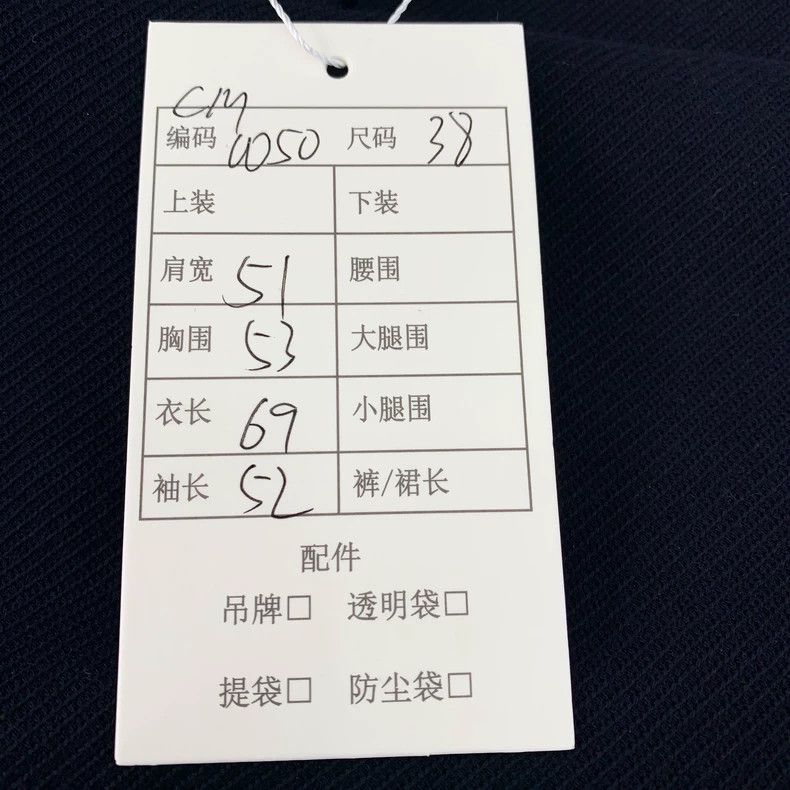 CM
编码 W050 尺码 38
上装 下装
肩宽 51 腰围
胸围 53 大腿围
衣长 69 小腿围
袖长 52 裤/裙长
配件
吊牌□ 透明袋□
提袋□ 防尘袋□